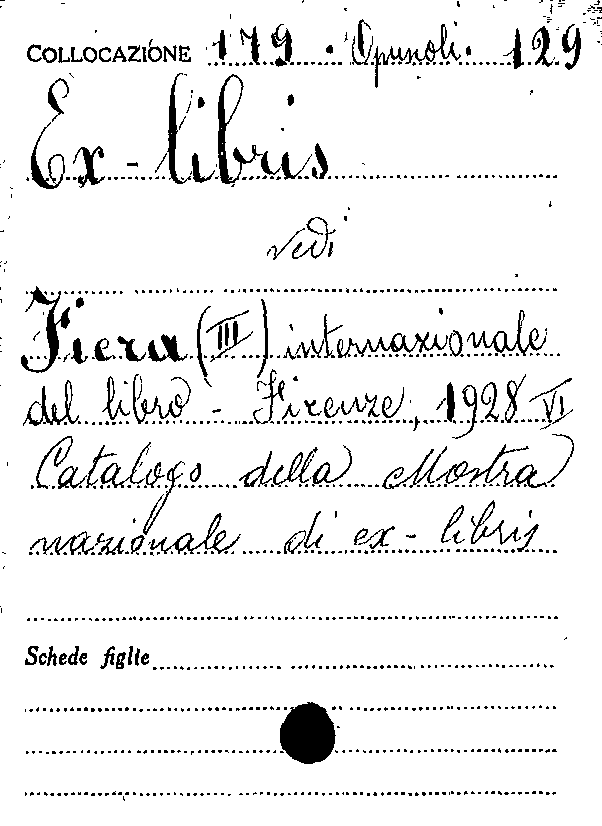 COLLOCAZIONE 179 . Opuscoli. 129
Ex-libris
vedi
Fiera (III) internazionale
del libro - Firenze, 1928 VI
Catalogo della Mostra
nazionale di ex-libris
Schede figlie